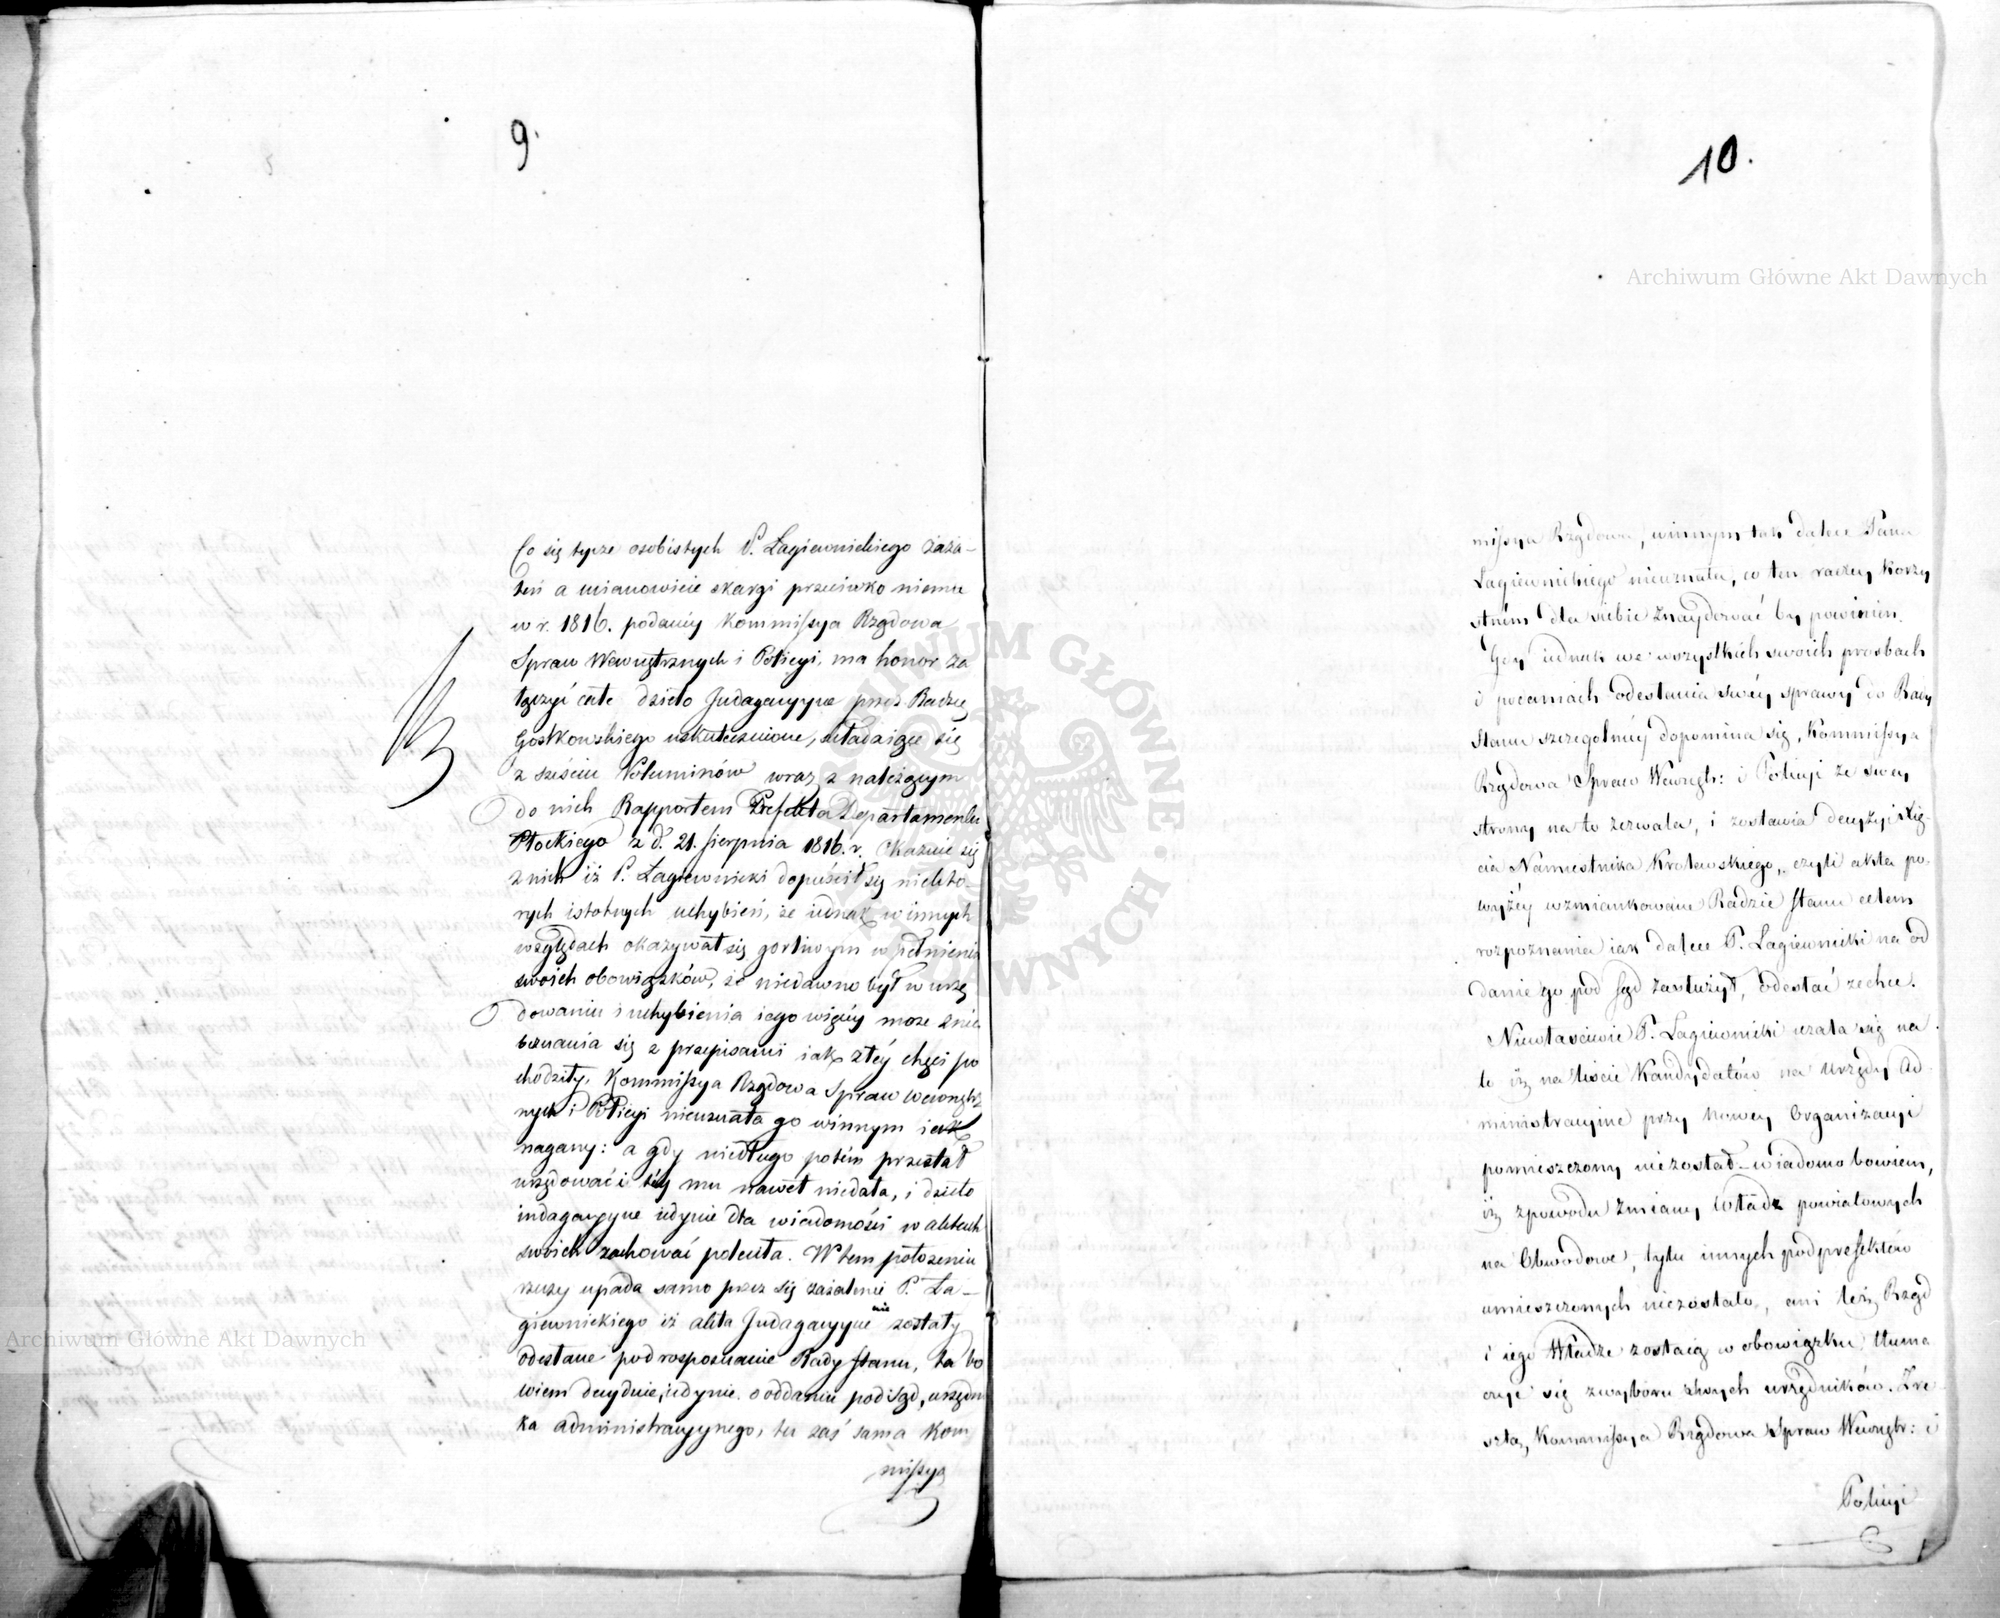 9.
Co się tycze osobistych P. Łagiewnickiego zaża-
leń a mianowicie skargi przeciwko niemu
w r. 1816. podanéy Kommissya Rządowa
Spraw Wewnętrznych i Policyi, ma honor za
łączyć całe dzieło Indagacyyne przez Radzcę
Gostkowskiego uskutecznione, składaiące się
z sześciu Voluminów wraz z należącym
do nich Rapportem Prefekta Departamentu
Płockiego z d. 21. Sierpnia 1816. r. Okazuie się
z nich iż P. Łagiewnicki dopuścił się niekto-
rych istotnych uchybień, że iednak w innych
względach okazywał się gorliwym w pełnieniu
swoich obowiązków, że niedawno był w urzę
dowaniu i uchybienia iego więcéy może z nie
beznania się z przepisami iak złéy chęci po
chodziły, Kommissya Rządowa Spraw Wewnętrz
nych i Policyi nieuznała go winnym iak
nagany: a gdy niedługo potém przestał
urzędować i téy mu nawet niedała, i dzieło
indagacyyne iedynie dla wiadomości w aktach
swoich zachować poleciła. W tem położeniu
rzeczy upada samo przez się zażalenie P. Ła-
giewnickiego iż akta Indagacyyne nie zostały
odesłane pod rozpoznanie Rady Stanu, ta bo
wiem decyduie iedynie o oddaniu pod Sąd, urzędni
ka administracyynego, tu zaś sama Kom
missya
10.
missya Rządowa, winnym tak dalece Pana
Łagiewnickiego nieuznała, co ten raczey korzy
stném dla siebie znaydować by powinien.
Gdy iednak we wszystkich swoich prosbach
i pocamach odesłania swéy sprawy do Rady
Stanu szczególniéy dopomina się, Kommissya
Rządowa Spraw Wewnętr: i Policyi ze swey
strony na to zezwala, i zostawia decyzyi Xię-
cia Namiestnika Krolewskiego, czyli akta po-
wyżéy wzmiankowane Radzie Stanu celem
rozpoznania iak dalece P. Łagiewnicki na od
danie go pod Sąd zasłużył, odesłać zechce.
Niewłaściwie P. Łagiewnicki użala się na
to iż na liście Kandydatów na urzędy Ad-
ministracyine przy nowey Organizacyi
pomieszczony niezostał – wiadomo bowiem,
iż z powodu zmiany Władz powiatowych
na Obwodowe, tylu innych podprefektów
umieszczonych niezostało, ani też Rząd
i iego Władze zostaią w obowiązku tłuma
czyć się z wyboru swych urzędników. Zre
sztą, Kommissya Rządowa Spraw Wewnętr: i
Policyi
Archiwum Główne Akt Dawnych
Archiwum Główne Akt Dawnych
ARCHIWUM GŁÓWNE AKT DAWNYCH